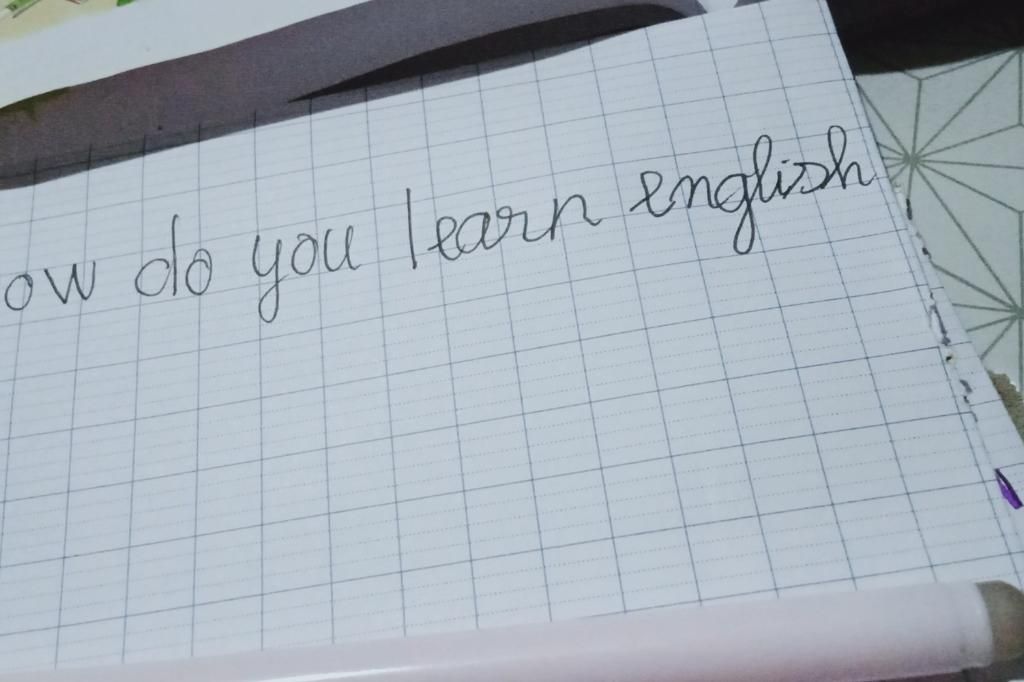 ow do you learn english